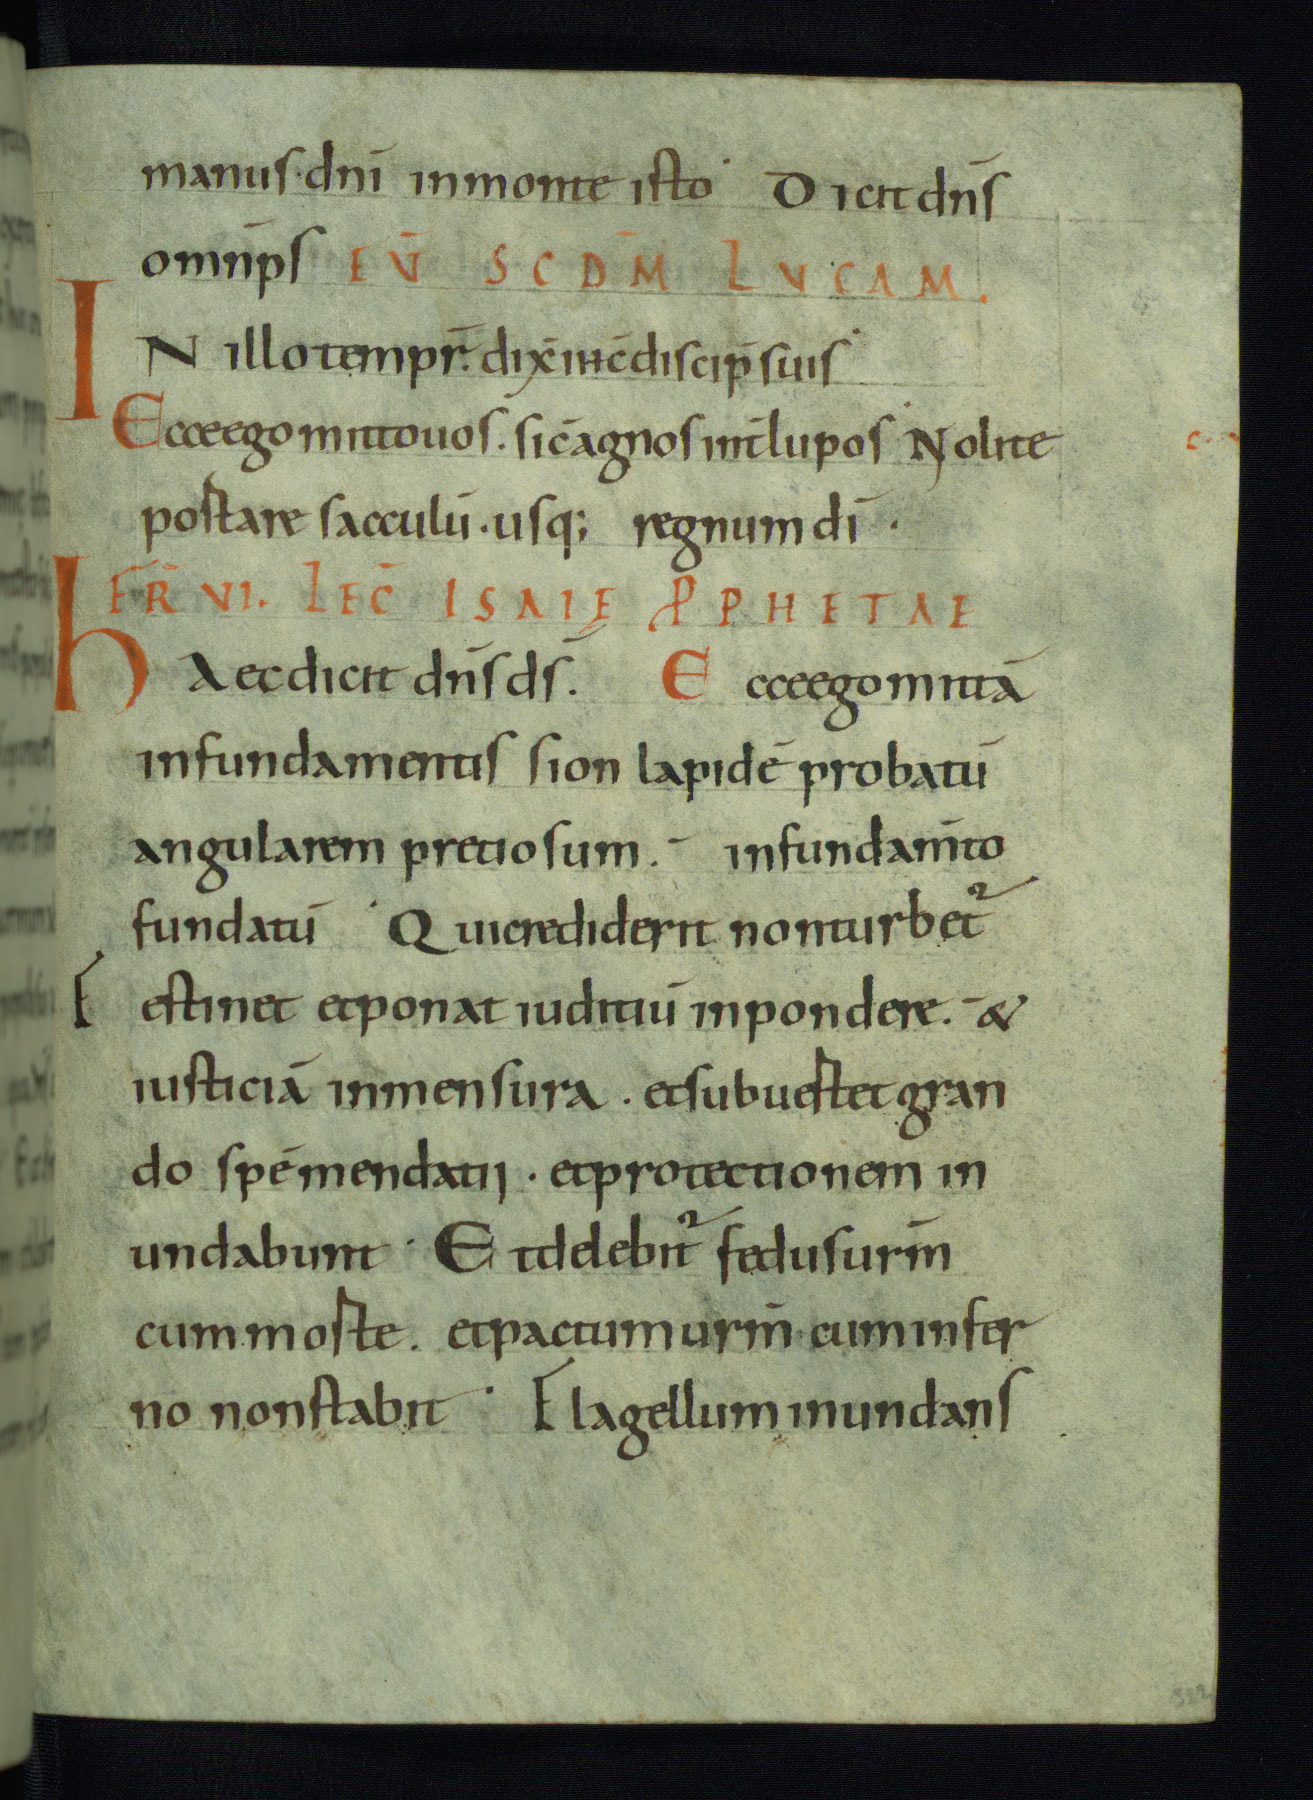 manus·dnī in monte isto· Dicit dn̄s
omnīps EV̄ SCDM̄ LVCAM.
IN illo tempr̄. dix̄ ih̄c discip̄ suis·
Ecce ego mitto uos. sic̄ agnos int̄ lupos· Nolite
portare sacculū· usq; regnum dī ·
FR̄ VI. LEC̄ ISAIĘ PPHETAE
hAec dicit dn̄s ds̄. Ecce ego mittā
in fundamentis sion lapidē probatū
angularem pretiosum. - in fundam̄to
fundatū · Qui crediderit non turbet᷑
Festinet et ponat iuditiū in pondere. - &
iusticiā in mensura. et subuertet gran
do spē mendatij · et protectionem in
undabunt· Et delebit᷑ fedus urm̄
cum morte. et pactum urm̄ cum infer
no non stabit · Flagellum inundans
322